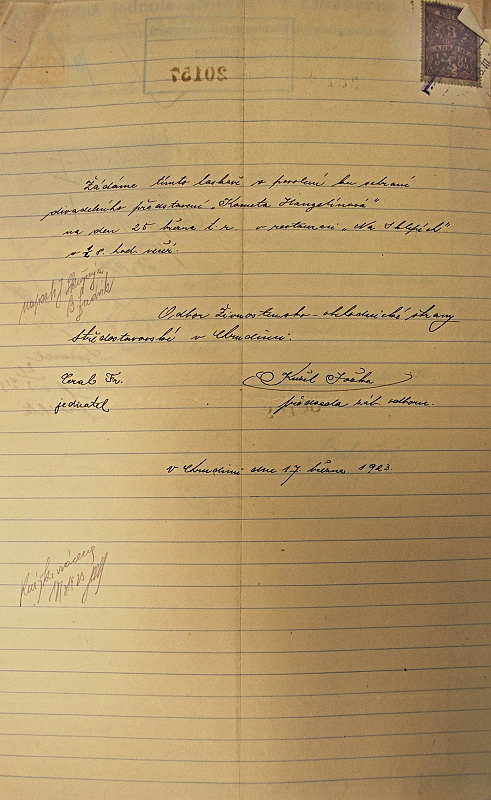 20157
Žádáme tímto laskavě o povolení ku sehrání
divadelního představení „Kometa Hanzelínová"
na den 25. března t. r. v restauraci „Na Sklepích"
o ½ 8. hod. večer.
Odbor Živnostensko-obchodnické strany
středostavovské v Chrudimi.
Fr.
jednatel
předseda záb. odboru.
v Chrudimi dne 17. března 1923.